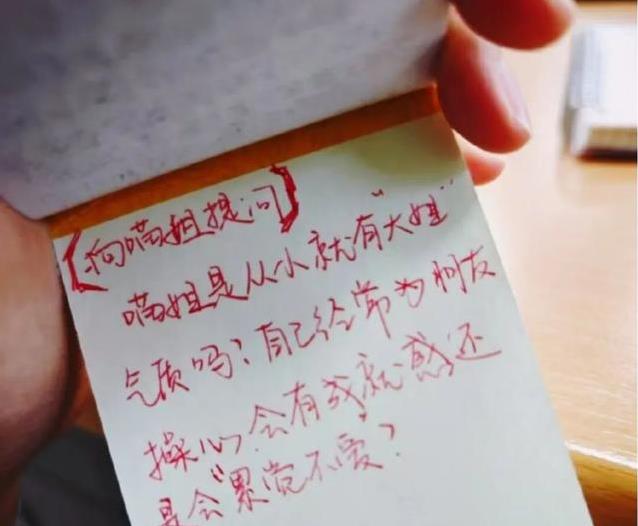 【向喵姐提问】
喵姐是从小就有"大姐"
气质吗?自己经常为朋友
操心,会有成就感还
是会"累觉不爱"?